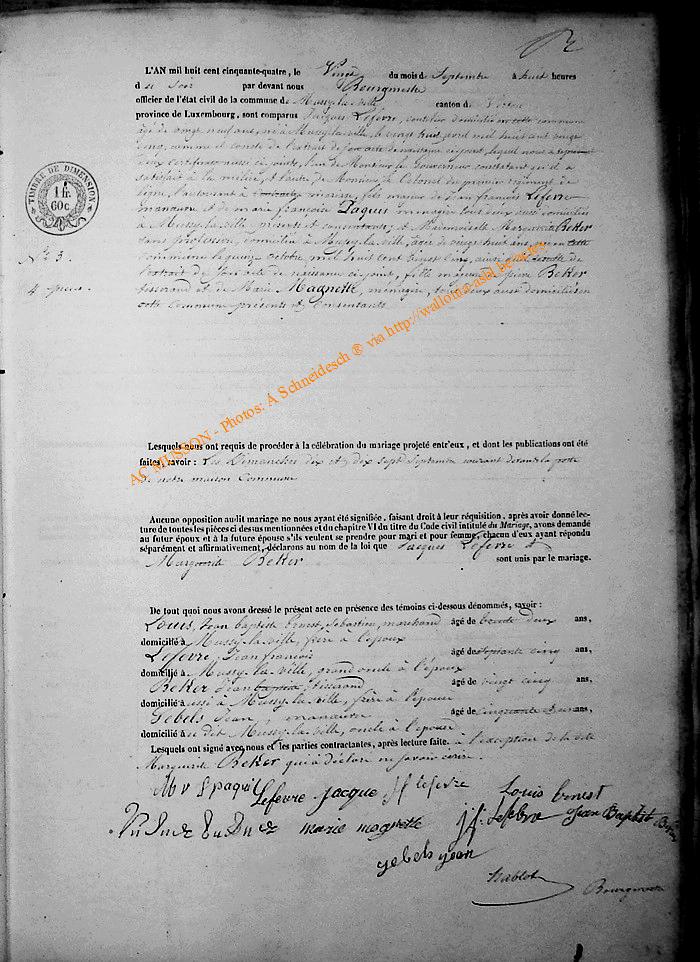 L'AN mil huit cent cinquante-quatre, le Vingt du mois de Septembre à huit heures
d u Soir par devant nous Bourgmestre
officier de l'état civil de la commune de Mussy-la-ville canton de Virton
province de Luxembourg, sont comparus Jacques Lefevre, domicilié en cette commune
âgé de vingt neuf ans, né à Mussy-la-ville, le vingt huit avril mil huit cent vingt
cinq, comme il conste de l'extrait de son acte de naissance ci-joint, lequel nous a
deux certificats aussi ci-joints, l'un de Monsieur le Gouverneur constatant qu'il a
satisfait à la milice, et l'autre de Monsieur le Colonel du premier régiment de
ligne, l'autorisant à mariage, fils majeur de Jean françois Lefevre
manœuvre et de marie françoise Paquis ménagère tout deux aussi domiciliés
à Mussy-la-ville présents et consentants; et Mademoiselle Marguerite Beker
sans profession, domiciliée à Mussy-la-ville, âgée de vingt huit ans, née en cette
TIMBRE DE DIMENSION
1 f.
60 c.
N° 3.
commune le quinze octobre, mil huit cent vingt cinq, ainsi qu'il conste de
l'extrait de son acte de naissance ci-joint, fille majeure de pierre Beker
tisserand et de Marie Magnette, ménagère, tous deux aussi domiciliés en
cette Commune présents et Consentants.
Lesquels nous ont requis de procéder à la célébration du mariage projeté entr'eux, et dont les publications ont été
faites, savoir : Les Dimanches dix et dix sept Septembre courant devant la porte
de notre maison Commune
Aucune opposition audit mariage ne nous ayant été signifiée, faisant droit à leur réquisition, après avoir donné lec-
ture de toutes les pièces ci dessus mentionnées et du chapitre VI du titre du Code civil intitulé du Mariage, avons demandé
au futur époux et à la future épouse s'ils veulent se prendre pour mari et pour femme, chacun d'eux ayant répondu
séparément et affirmativement, déclarons au nom de la loi que Jacques Lefevre et
Marguerite Beker sont unis par le mariage.
De tout quoi nous avons dressé le présent acte en présence des témoins ci-dessous dénommés, savoir :
Louis, Jean baptiste Ernest Sebastien, marchand âgé de trente deux ans,
domicilié à Mussy-la-ville, frère à l'époux
Lefevre, Jean françois âgé de soixante cinq ans,
domicilié à Mussy-la-ville, grand oncle à l'époux
Beker Jean baptiste, tisserand âgé de vingt cinq ans,
domicilié aussi à Mussy-la-ville, frère à l'épouse
Gebels Jean, manœuvre âgé de cinquante ans,
domicilié au dit Mussy-la-ville, oncle à l'épouse
Lesquels ont signé avec nous et les parties contractantes, après lecture faite. à l'exception de la dite
Marguerite Beker qui a déclaré ne savoir écrire.
Lefevre jacque jf lefevre Louis Ernest
marie magnette j f. Lefebvre Jean Baptist
gebels jean
Hablot Bourgmestre
AC MUSSON - Photos: A Schneidesch ® via http://wallonia-asbl.be/actes